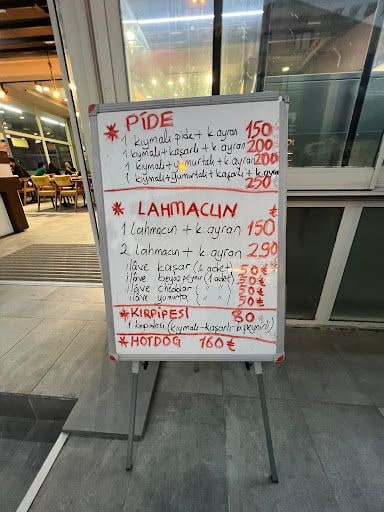 * PİDE
1 kıymalı pide + k.ayran 150
1 kıymalı + kaşarlı + k.ayran 200
1 kıymalı + yumurtalı + k.ayran 200
1 kıymalı + yumurtalı + kaşarlı + k.ayran
250
* LAHMACUN ₺
1 Lahmacun + k.ayran 150
2 lahmacun + k.ayran 290
ilave kaşar (1 adet) 50 ₺
ilave beyaz peynir (1 adet) 50 ₺
ilave cheddar " " 50 ₺
ilave yumurta " " 50 ₺
* KIRPİPESİ 80 ₺
1 kırpidesi (kıymalı-kaşarlı-b.peynirli)
* HOTDOG 160 ₺